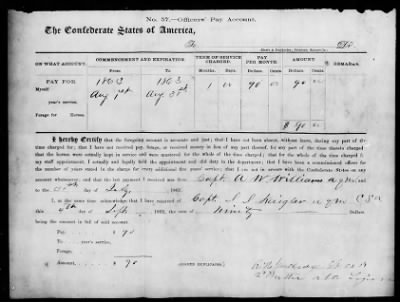 No. 57.—Officers' Pay Account.
The Confederate States of America,
To Dr.
ON WHAT ACCOUNT. COMMENCEMENT AND EXPIRATION. TERM OF SERVICE CHARGED. PAY PER AMOUNT REMARKS.
From To Months. Days. Dollars. Cents. Dollars. Cents.
PAY FOR 1863 1863
Myself Aug 1st Aug 31st 1 90 90
year's service.
Forage for Horses.
$ 90
I hereby Certify that the foregoing account is accurate and just; that I have not been absent without leave, during any part of the
time charged for; that I have not received pay, forage, or received money in lieu of any part thereof, for any part of the time therein charged; that
the horses were actually kept in service and were mustered for the whole of the time charged; that for the whole of the time charged for
my staff appointment, I actually and legally held the appointment and did duty in the department; that I have been a commissioned officer for
the number of years stated in the charge for every additional five years' service; that I am not in arrears with the Confederate States on any
account whatsoever; and that the last payment I received was from Capt A W Williams
to the 31st day of July 186
I, at the same time, acknowledge that I have received of Capt
this day of Sept 186 , the sum of Ninety Dollars
being the amount in full of said account.
Pay, $ 90
To year's service,
Forage,
Amount, $ 90 [SIGNED DUPLICATES.]